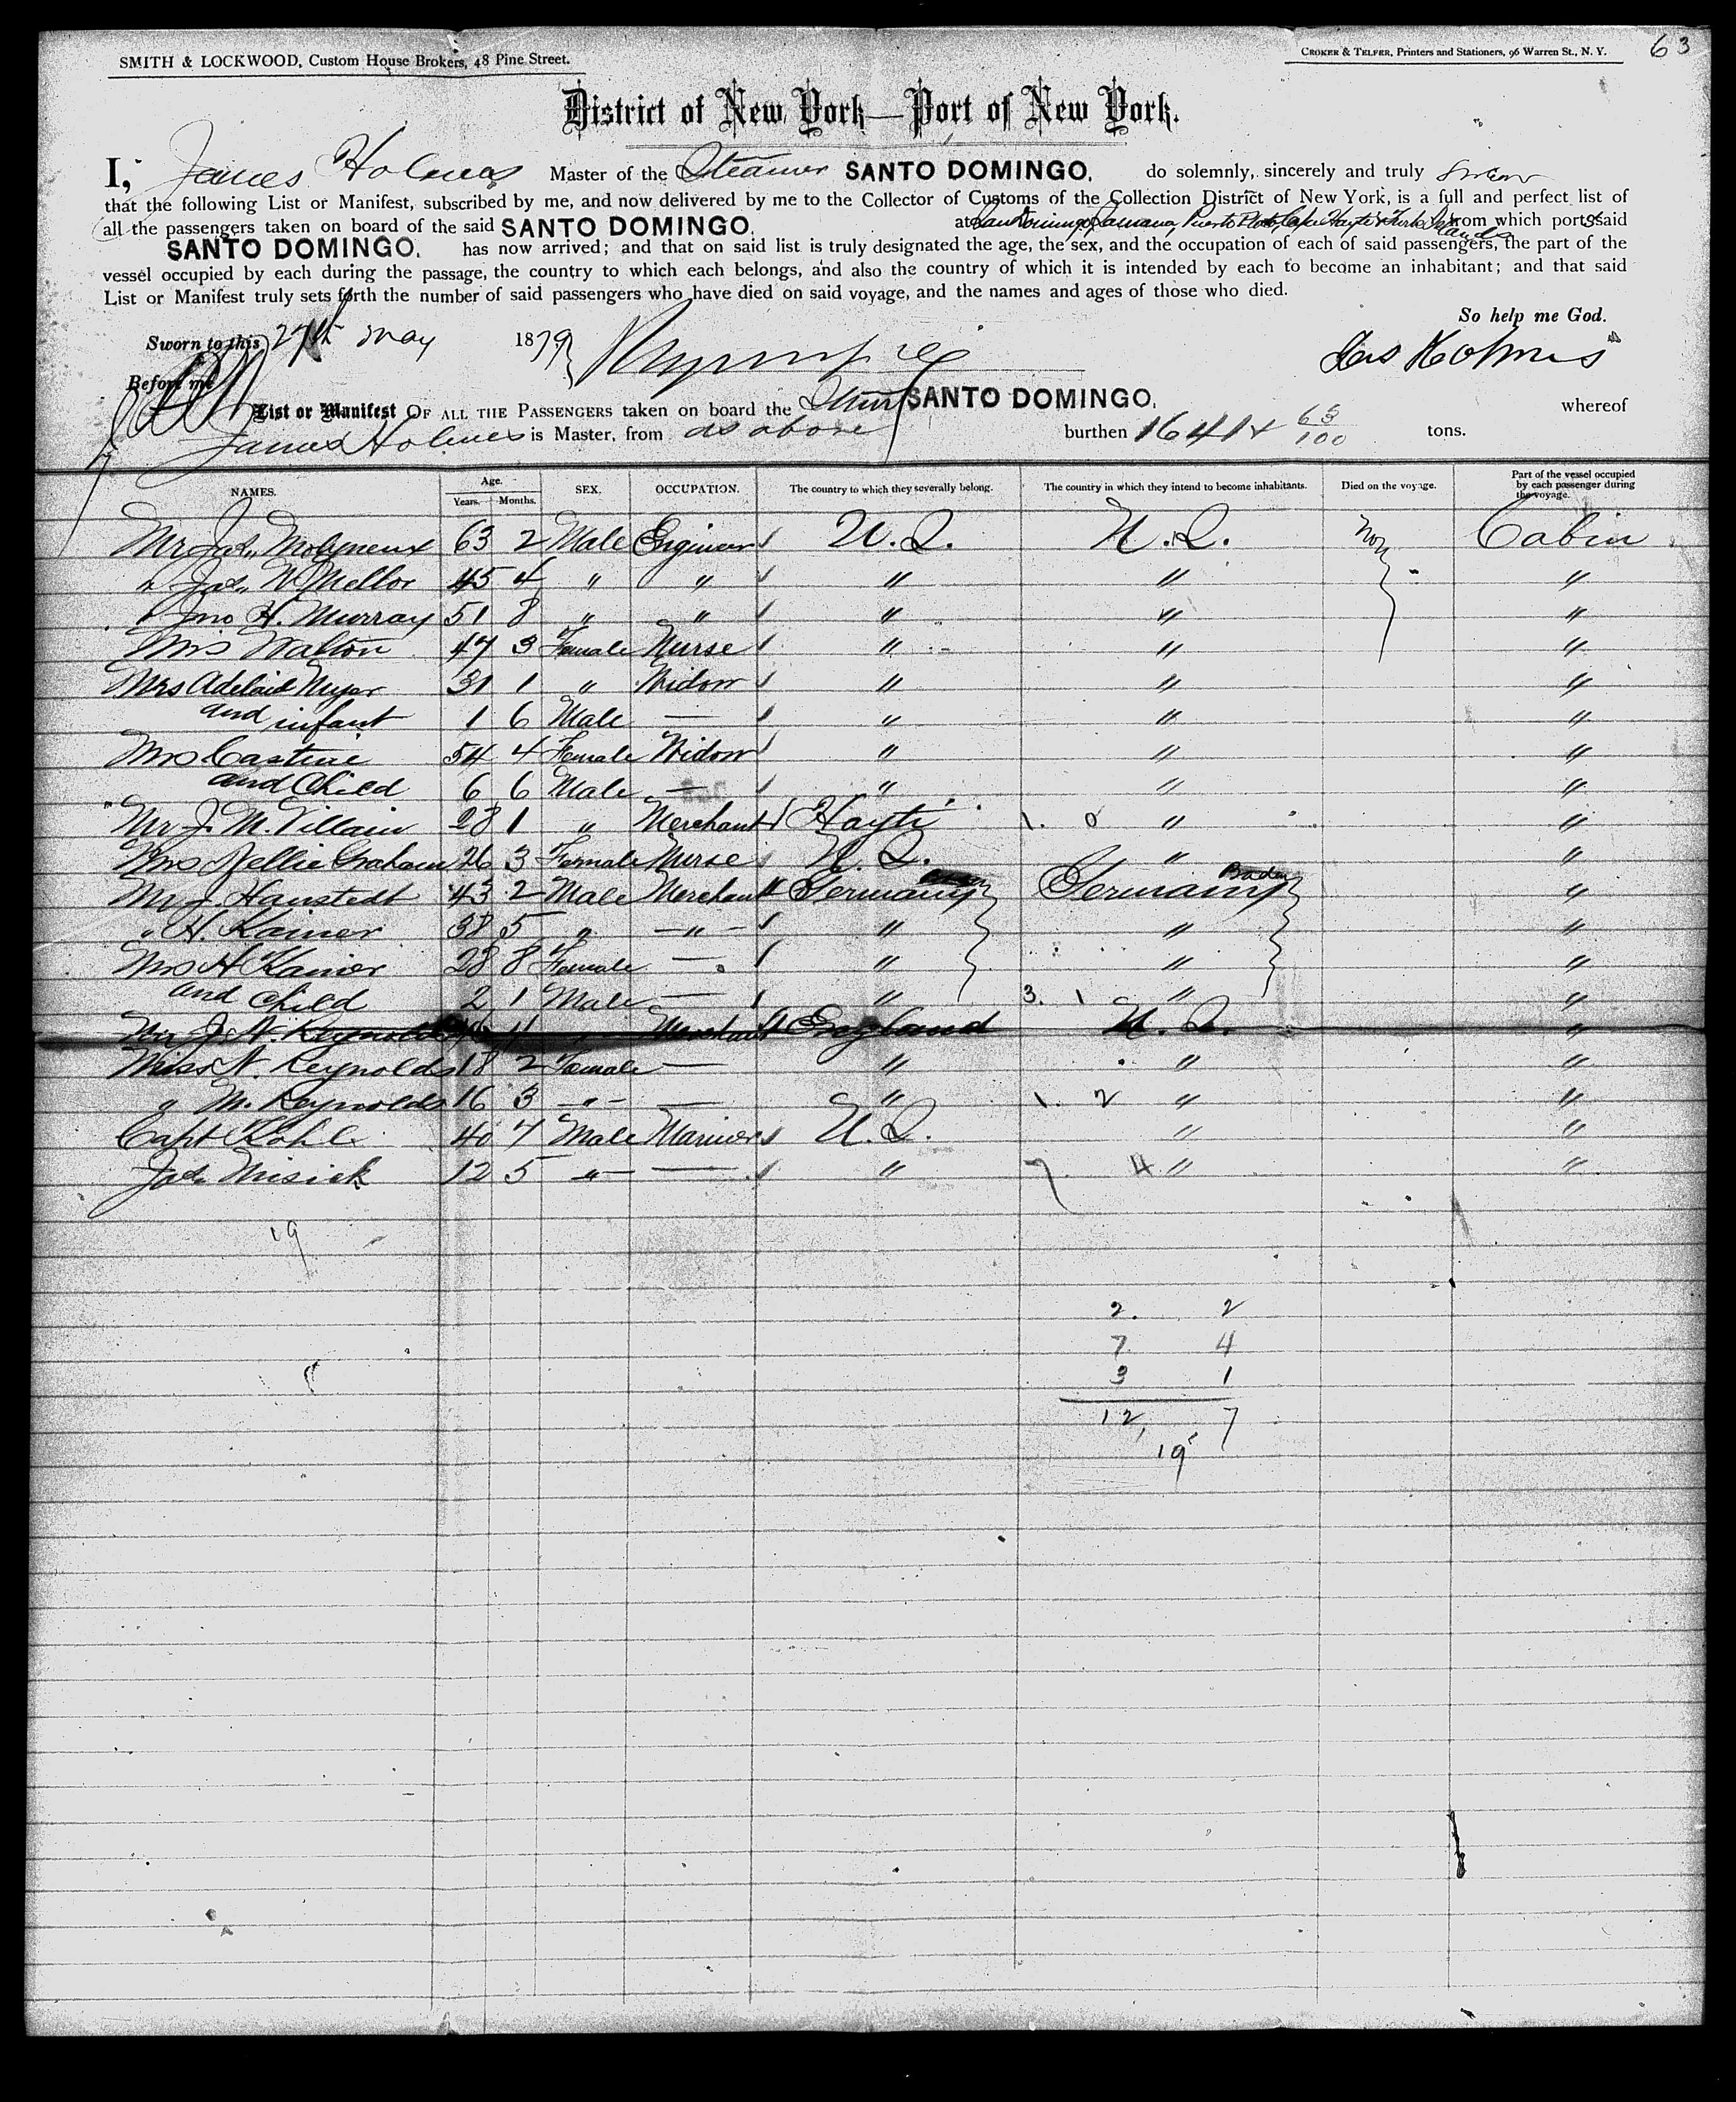 63
SMITH & LOCKWOOD, Custom House Brokers, 48 Pine Street.
CROKER & TELFER, Printers and Stationers, 96 Warren St., N. Y.
District of New York—Port of New York.
I, James Holmes Master of the Steamer SANTO DOMINGO, do solemnly, sincerely and truly swear
that the following List or Manifest, subscribed by me, and now delivered by me to the Collector of Customs of the Collection District of New York, is a full and perfect list of
all the passengers taken on board of the said SANTO DOMINGO, at San Domingo, Samana, Puerto Plata, Cape Hayti & Turks Islands from which ports said
SANTO DOMINGO, has now arrived; and that on said list is truly designated the age, the sex, and the occupation of each of said passengers, the part of the
vessel occupied by each during the passage, the country to which each belongs, and also the country of which it is intended by each to become an inhabitant; and that said
List or Manifest truly sets forth the number of said passengers who have died on said voyage, and the names and ages of those who died.
So help me God.
Sworn to this 27th May 1879
Jas Holmes
Before me
List or Manifest OF ALL THE PASSENGERS taken on board the Stmr SANTO DOMINGO, whereof
James Holmes is Master, from as above burthen 1641 & 63/100 tons.
NAMES. Age. Years. Months. SEX. OCCUPATION. The country to which they severally belong. The country in which they intend to become inhabitants. Died on the voyage. Part of the vessel occupied by each passenger during the voyage.
Mr Jas. Molyneux 63 2 Male Engineer U.S. U.S. Cabin
" Jas. W. Mellor 45 4 " " " " "
" Jno H. Murray 51 8 " " " " "
Mrs Walton 47 3 Female Nurse " " "
Mrs Adelaid Myer 31 1 " Widow " " "
and infant 1 6 Male — " " "
Mrs Castine 54 4 Female Widow " " "
and Child 6 6 Male — " " "
Mr J. M. Villain 28 1 " Merchant Hayti 1. 0 " "
Mrs Nellie Graham 26 3 Female Nurse U.S. " "
Mr J. Hanstedt 43 2 Male Merchant Germany Germany Baden "
" H. Kainer 38 5 " " " " "
Mrs H Kainer 28 8 Female — " " "
and child 2 1 Male — " 3. 1 " "
Mr J. N. Reynolds 11 " Merchant England U.S. "
Miss N. Reynolds 18 2 Female — " " "
" M. Reynolds 16 3 " — " 1. 2 " "
Capt Kohl 40 7 Male Mariner U.S. " "
Jas. Misick 12 5 " — " 7 4 " "
19
2. 2
7 4
3 1
12, 7
19